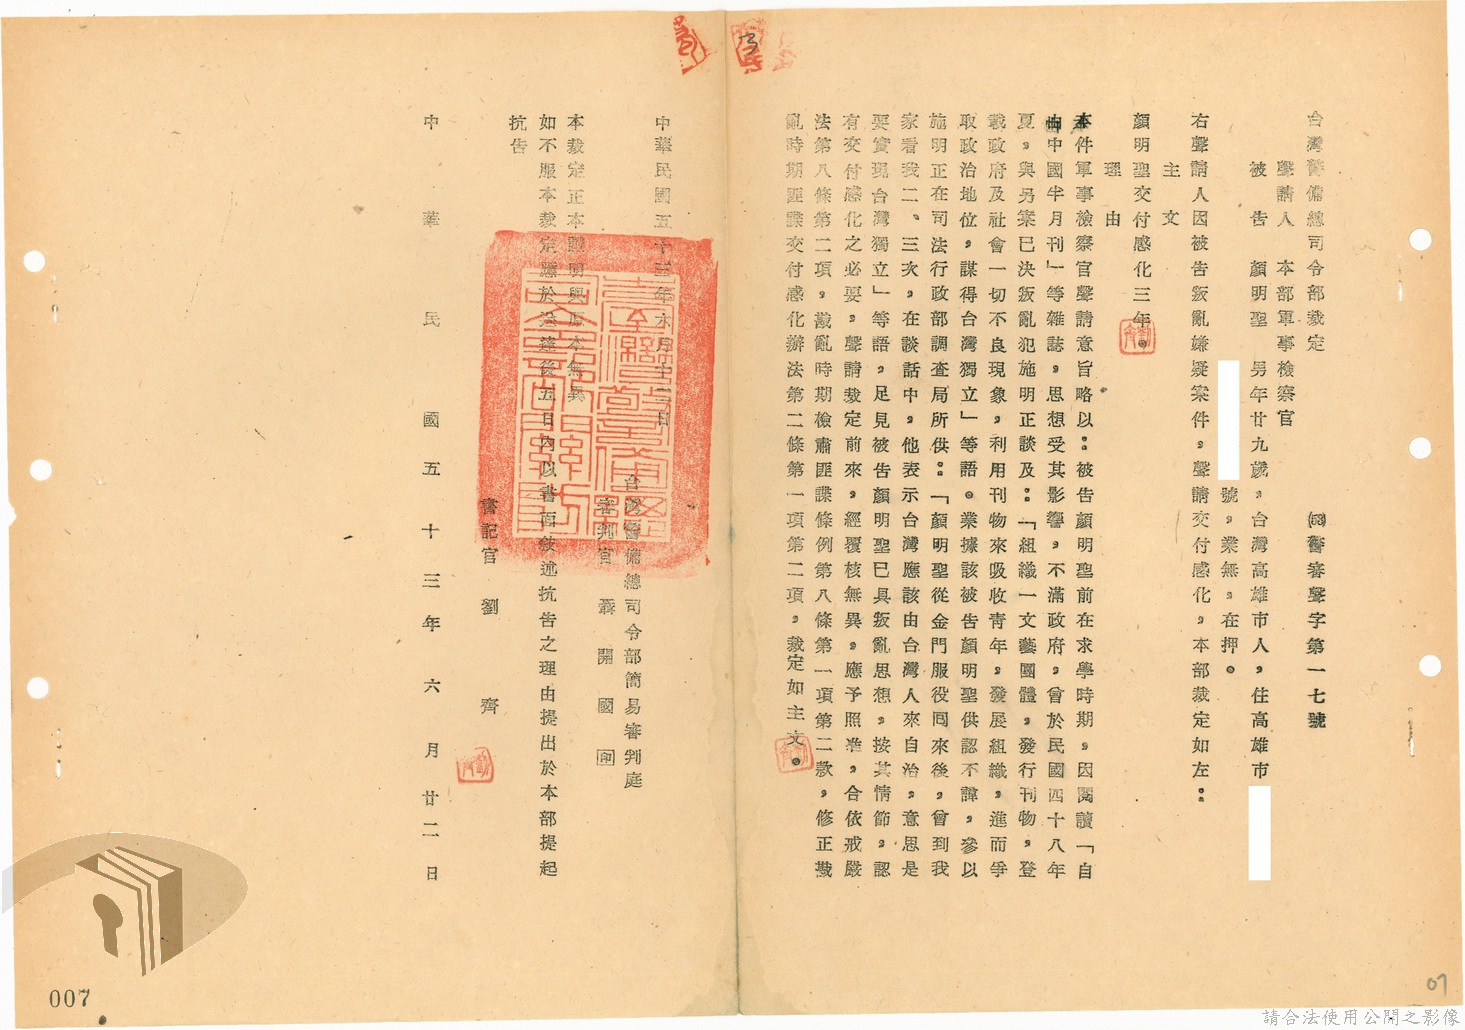 台灣警備總司令部裁定
警審聲字第一七號
聲請人　本部軍事檢察官
被告　顏明聖　男年廿九歲，台灣高雄市人，住高雄市
號，業無，在押。
右聲請人因被告叛亂嫌疑案件，聲請交付感化，本部裁定如左：
主文
顏明聖交付感化三年。
理由
本件軍事檢察官聲請意旨略以：被告顏明聖前在求學時期，因閱讀「自
由中國半月刊」等雜誌，思想受其影響，不滿政府，曾於民國四十八年
夏，與另案已決叛亂犯施明正談及：「組織一文藝團體，發行刊物，登
載政府及社會一切不良現象，利用刊物來吸收青年，發展組織，進而爭
取政治地位，謀得台灣獨立」等語。業據該被告顏明聖供認不諱，參以
施明正在司法行政部調查局所供：「顏明聖從金門服役回來後，曾到我
家看我二、三次，在談話中，他表示台灣應該由台灣人來自治，意思是
要實現台灣獨立」等語，足見被告顏明聖已具叛亂思想，按其情節，認
有交付感化之必要，聲請裁定前來，經覆核無異，應予照准，合依戒嚴
法第八條第二項，戡亂時期檢肅匪諜條例第八條第一項第二款，修正戡
亂時期匪諜交付感化辦法第二條第一項第二項，裁定如主文。
中華民國五十三年六月十二日
台灣警備總司令部簡易審判庭
審判官　聶開國　印
本裁定正本證明與原本無異
如不服本裁定應於送達後五日內以書面敘述抗告之理由提出於本部提起
抗告
書記官　劉齊
中華民國五十三年六月廿二日
007
07
請合法使用公開之影像